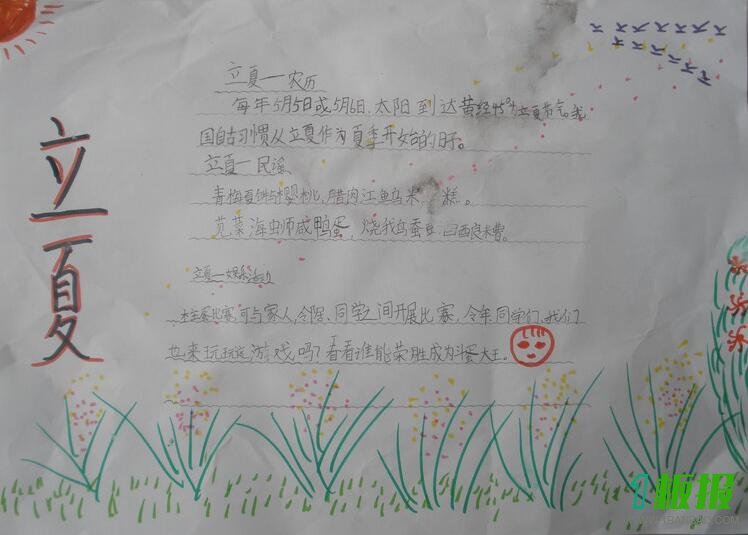 立夏
立夏一农历
每年5月5日或5月6日,太阳到达黄经45°为立夏节气。我
国自古习惯从立夏作为夏季开始的日子。
立夏一民谣
青梅夏饼与樱桃,腊肉江鱼乌米糕。
苋菜海虫师咸鸭蛋,烧我乌蚕豆
立夏一娱乐活动
比赛,可与家人,令阝居、同学之间开展比赛,令年同学们、我们
也来玩玩这游戏吗?看看谁能荣胜成为斗蛋大王。
板报